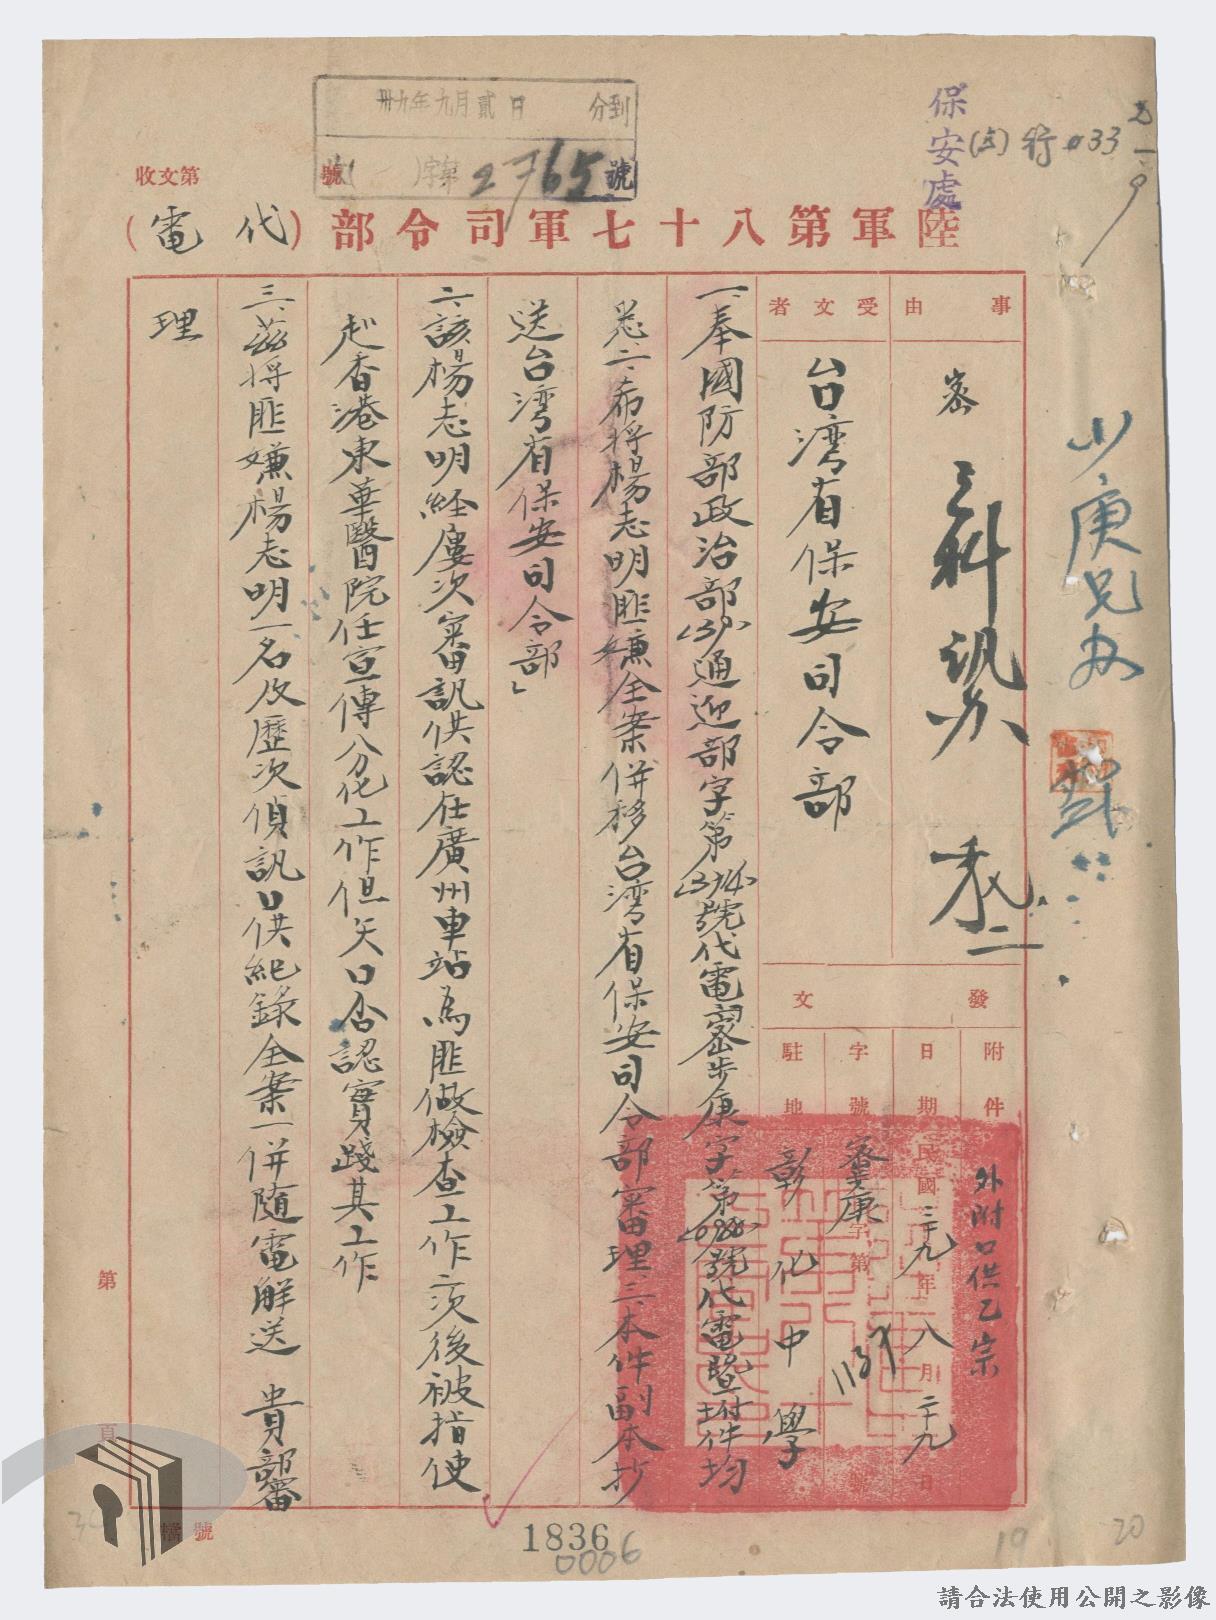 卅九年九月貳日
到
分
字第2765號
收文第 號
保安處
陸軍第八十七軍司令部（代電）
事由
密
受文者
台湾省保安司令部
發文
附件
外附口供乙宗
日期
民國三十九年八月二十九日
字號
字第 號
駐地
彰化中學
一、奉國防部政治部 通迎部字第 號代電密步康字第 號代電暨附件均
悉二、希將楊志明匪嫌全案併移台湾省保安司令部審理三、本件副本抄
送台湾省保安司令部」
二、該楊志明經屢次審訊供認在廣州車站為匪做檢查工作嗣後被指使
赴香港東華醫院任宣傳分化工作但矢口否認實踐其工作
三、茲將匪嫌楊志明一名及歷次偵訊口供紀錄全案一併隨電解送 貴部審
理
第
頁
檔號
1836
0006
19
20
請合法使用公開之影像